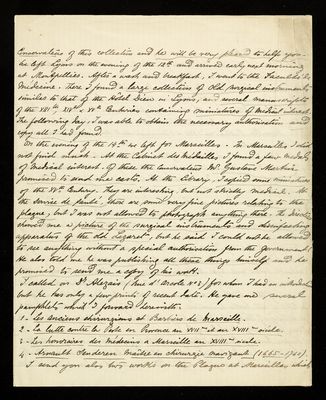 Conservateur of this collection and he will be very pleased to help you.
We left Lyons on the evening of the 12th and arrived early next morning
at Montpellier. After a wash and breakfast, I went to the Faculté de
Médecine, here I found a large collection of old surgical instruments
similar to that of the Hotel Dieu in Lyons, and several manuscripts
of the XIIIth XIVth & XVth Centuries containing miniatures of medical interest.
The following day, I was able to obtain the necessary authorisation and
copy all I had found.
On the evening of the 14th we left for Marseilles. In Marseilles I did
not find much. At the Cabinet des Médailles I found a few medals
of medical interest of these the Conservateur Mr. Gustave
promised to send me casts. At the Library, I copied some miniatures
of the XVth Century. They are interesting but not strictly medical. At
the Service de Santé, there are some very fine pictures relating to the
plague, but I was not allowed to photograph anything there. The Director
showed me a picture of the surgical instruments and disinfecting
apparatus of the old Lazaret, but he said I could not be allowed
to see anything without a special authorisation from the Government.
He also told me he was publishing all these things himself and he
promised to send me a copy of his work.
I called on Dr Alezais (rue d'Arcole No 3) for whom I had an introduction
but he has only a few prints of recent date. He gave me several
pamphlets which I forward herewith:
1 - Les anciens chirurgiens et Barbiers de Marseille.
2 - La lutte contre la Peste en Provence au XVIIme et au XVIIIme siècle.
3 - Les honoraires des médecins à Marseille au XVIIIme siècle.
4 - Arnoult maître en chirurgie
I send you also two works on the Plague at Marseilles which